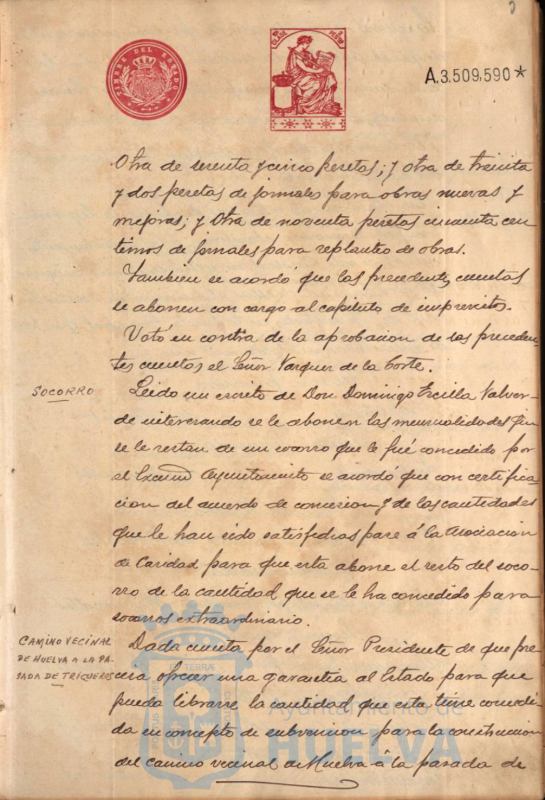 TIMBRE DEL ESTADO
A.3.509,590*
Otra de setenta y cinco pesetas; y otra de treinta
y dos pesetas de jornales para obras nuevas y
mejoras; y otra de noventa pesetas cincuenta cen
timos de jornales para replanteo de obras.
Tambien se acordó que las precedentes cuentas
se abonen con cargo al capitulo de imprevistos.
Votó en contra de la aprobacion de las preceden-
tes cuentas el Señor Vazquez de la Corte.
SOCORRO
Leido un escrito de Don Domingo Ercilla Valver-
de interesando se le abonen las mensualidades que
se le restan de un socorro que le fué concedido por
el Excmo Ayuntamiento se acordó que con certifica
cion del acuerdo de concesion y de las cantidades
que le han sido satisfechas pase á la Asociacion
de Caridad para que esta abone el resto del soco-
rro de la cantidad que se le ha concedido para
socorros extraordinario.
CAMINO VECINAL
DE HUELVA A LA PA-
SADA DE TRIGUEROS
Dada cuenta por el Señor Presidente de que pre
cisa ofrecer una garantia al Estado para que
pueda librarse la cantidad que esta tiene concedi
da en concepto de subvencion para la construccion
del camino vecinal de Huelva á la pasada de
Ayuntamiento de
HUELVA